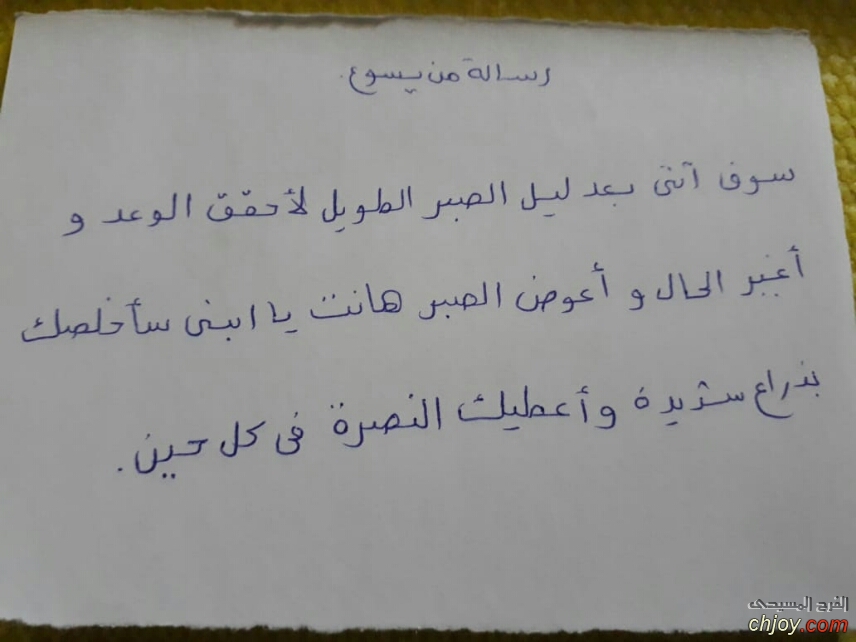 رسالة من يسوع.
سوف آتى بعد ليل الصبر الطويل لأحقق الوعد و
أغير الحال و أعوض الصبر هانت يا ابنى سأخلصك
بذراع شديدة وأعطيك النصرة فى كل حين.
الفرح المسيحى
chjoy.com